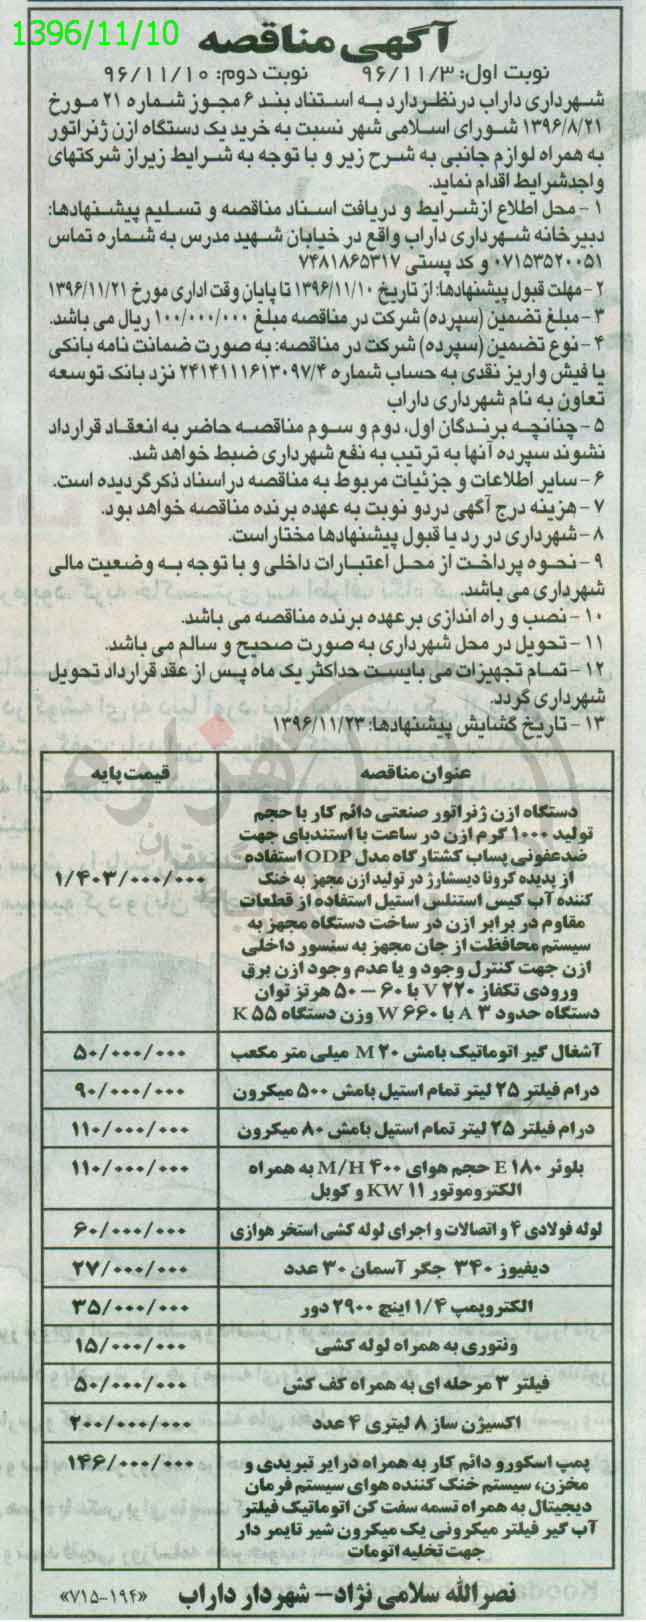 1396/11/10
آگهی مناقصه
نوبت اول: ۹۶/۱۱/۳ نوبت دوم: ۹۶/۱۱/۱۰
شهرداری داراب در نظر دارد به استناد بند ۶ مجوز شماره ۲۱ مورخ
۱۳۹۶/۸/۲۱ شورای اسلامی شهر نسبت به خرید یک دستگاه ازن ژنراتور
به همراه لوازم جانبی به شرح زیر و با توجه به شرایط زیر از شرکتهای
واجدشرایط اقدام نماید.
۱- محل اطلاع از شرایط و دریافت اسناد مناقصه و تسلیم پیشنهادها:
دبیرخانه شهرداری داراب واقع در خیابان شهید مدرس به شماره تماس
۰۷۱۵۳۵۲۰۰۵۱ و کد پستی ۷۴۸۱۸۶۵۳۱۷
۲- مهلت قبول پیشنهادها: از تاریخ ۱۳۹۶/۱۱/۱۰ تا پایان وقت اداری مورخ ۱۳۹۶/۱۱/۲۱
۳- مبلغ تضمین (سپرده) شرکت در مناقصه مبلغ ۱۰۰/۰۰۰/۰۰۰ ریال می باشد.
۴- نوع تضمین (سپرده) شرکت در مناقصه: به صورت ضمانت نامه بانکی
یا فیش واریز نقدی به حساب شماره ۲۴۱۴۱۱۱۶۱۳۰۹۷/۴ نزد بانک توسعه
تعاون به نام شهرداری داراب
۵- چنانچه برندگان اول، دوم و سوم مناقصه حاضر به انعقاد قرارداد
نشوند سپرده آنها به ترتیب به نفع شهرداری ضبط خواهد شد.
۶- سایر اطلاعات و جزئیات مربوط به مناقصه در اسناد ذکر گردیده است.
۷- هزینه درج آگهی در دو نوبت به عهده برنده مناقصه خواهد بود.
۸- شهرداری در رد یا قبول پیشنهادها مختار است.
۹- نحوه پرداخت از محل اعتبارات داخلی و با توجه به وضعیت مالی
شهرداری می باشد.
۱۰- نصب و راه اندازی برعهده برنده مناقصه می باشد.
۱۱- تحویل در محل شهرداری به صورت صحیح و سالم می باشد.
۱۲- تمام تجهیزات می بایست حداکثر یک ماه پس از عقد قرارداد تحویل
شهرداری گردد.
۱۳- تاریخ گشایش پیشنهادها: ۱۳۹۶/۱۱/۲۳
عنوان مناقصه قیمت پایه
دستگاه ازن ژنراتور صنعتی دائم کار با حجم
تولید ۱۰۰۰ گرم ازن در ساعت با استندبای جهت
ضدعفونی پساب کشتارگاه مدل ODP استفاده
از پدیده کرونا دیسشارژ در تولید ازن مجهز به خنک ۱/۴۰۳/۰۰۰/۰۰۰
کننده آب کیس استنلس استیل استفاده از قطعات
مقاوم در برابر ازن در ساخت دستگاه مجهز به
سیستم محافظت از جان مجهز به سنسور داخلی
ازن جهت کنترل وجود و یا عدم وجود ازن برق
ورودی تکفاز ۲۲۰ V با ۶۰ – ۵۰ هرتز توان
دستگاه حدود ۳ A با ۶۶۰ W وزن دستگاه ۵۵ K
آشغال گیر اتوماتیک بامش ۲۰ M میلی متر مکعب ۵۰/۰۰۰/۰۰۰
درام فیلتر ۲۵ لیتر تمام استیل بامش ۵۰۰ میکرون ۹۰/۰۰۰/۰۰۰
درام فیلتر ۲۵ لیتر تمام استیل بامش ۸۰ میکرون ۱۱۰/۰۰۰/۰۰۰
بلوئر ۱۸۰ E حجم هوای ۴۰۰ M/H به همراه ۱۱۰/۰۰۰/۰۰۰
الکتروموتور ۱۱ KW و کوبل
لوله فولادی ۴ و اتصالات و اجرای لوله کشی استخر هوازی ۶۰/۰۰۰/۰۰۰
دیفیوز ۳۴۰ جگر آسمان ۳۰ عدد ۲۷/۰۰۰/۰۰۰
الکتروپمپ ۱/۴ اینچ ۲۹۰۰ دور ۳۵/۰۰۰/۰۰۰
ونتوری به همراه لوله کشی ۱۵/۰۰۰/۰۰۰
فیلتر ۳ مرحله ای به همراه کف کش ۵۰/۰۰۰/۰۰۰
اکسیژن ساز ۸ لیتری ۴ عدد ۲۰۰/۰۰۰/۰۰۰
پمپ اسکورو دائم کار به همراه درایر تبریدی و ۱۴۶/۰۰۰/۰۰۰
مخزن، سیستم خنک کننده هوای سیستم فرمان
دیجیتال به همراه تسمه سفت کن اتوماتیک فیلتر
آب گیر فیلتر میکرونی یک میکرون شیر تایمر دار
جهت تخلیه اتومات
نصرالله سلامی نژاد – شهردار داراب «۷۱۵-۱۹۴»